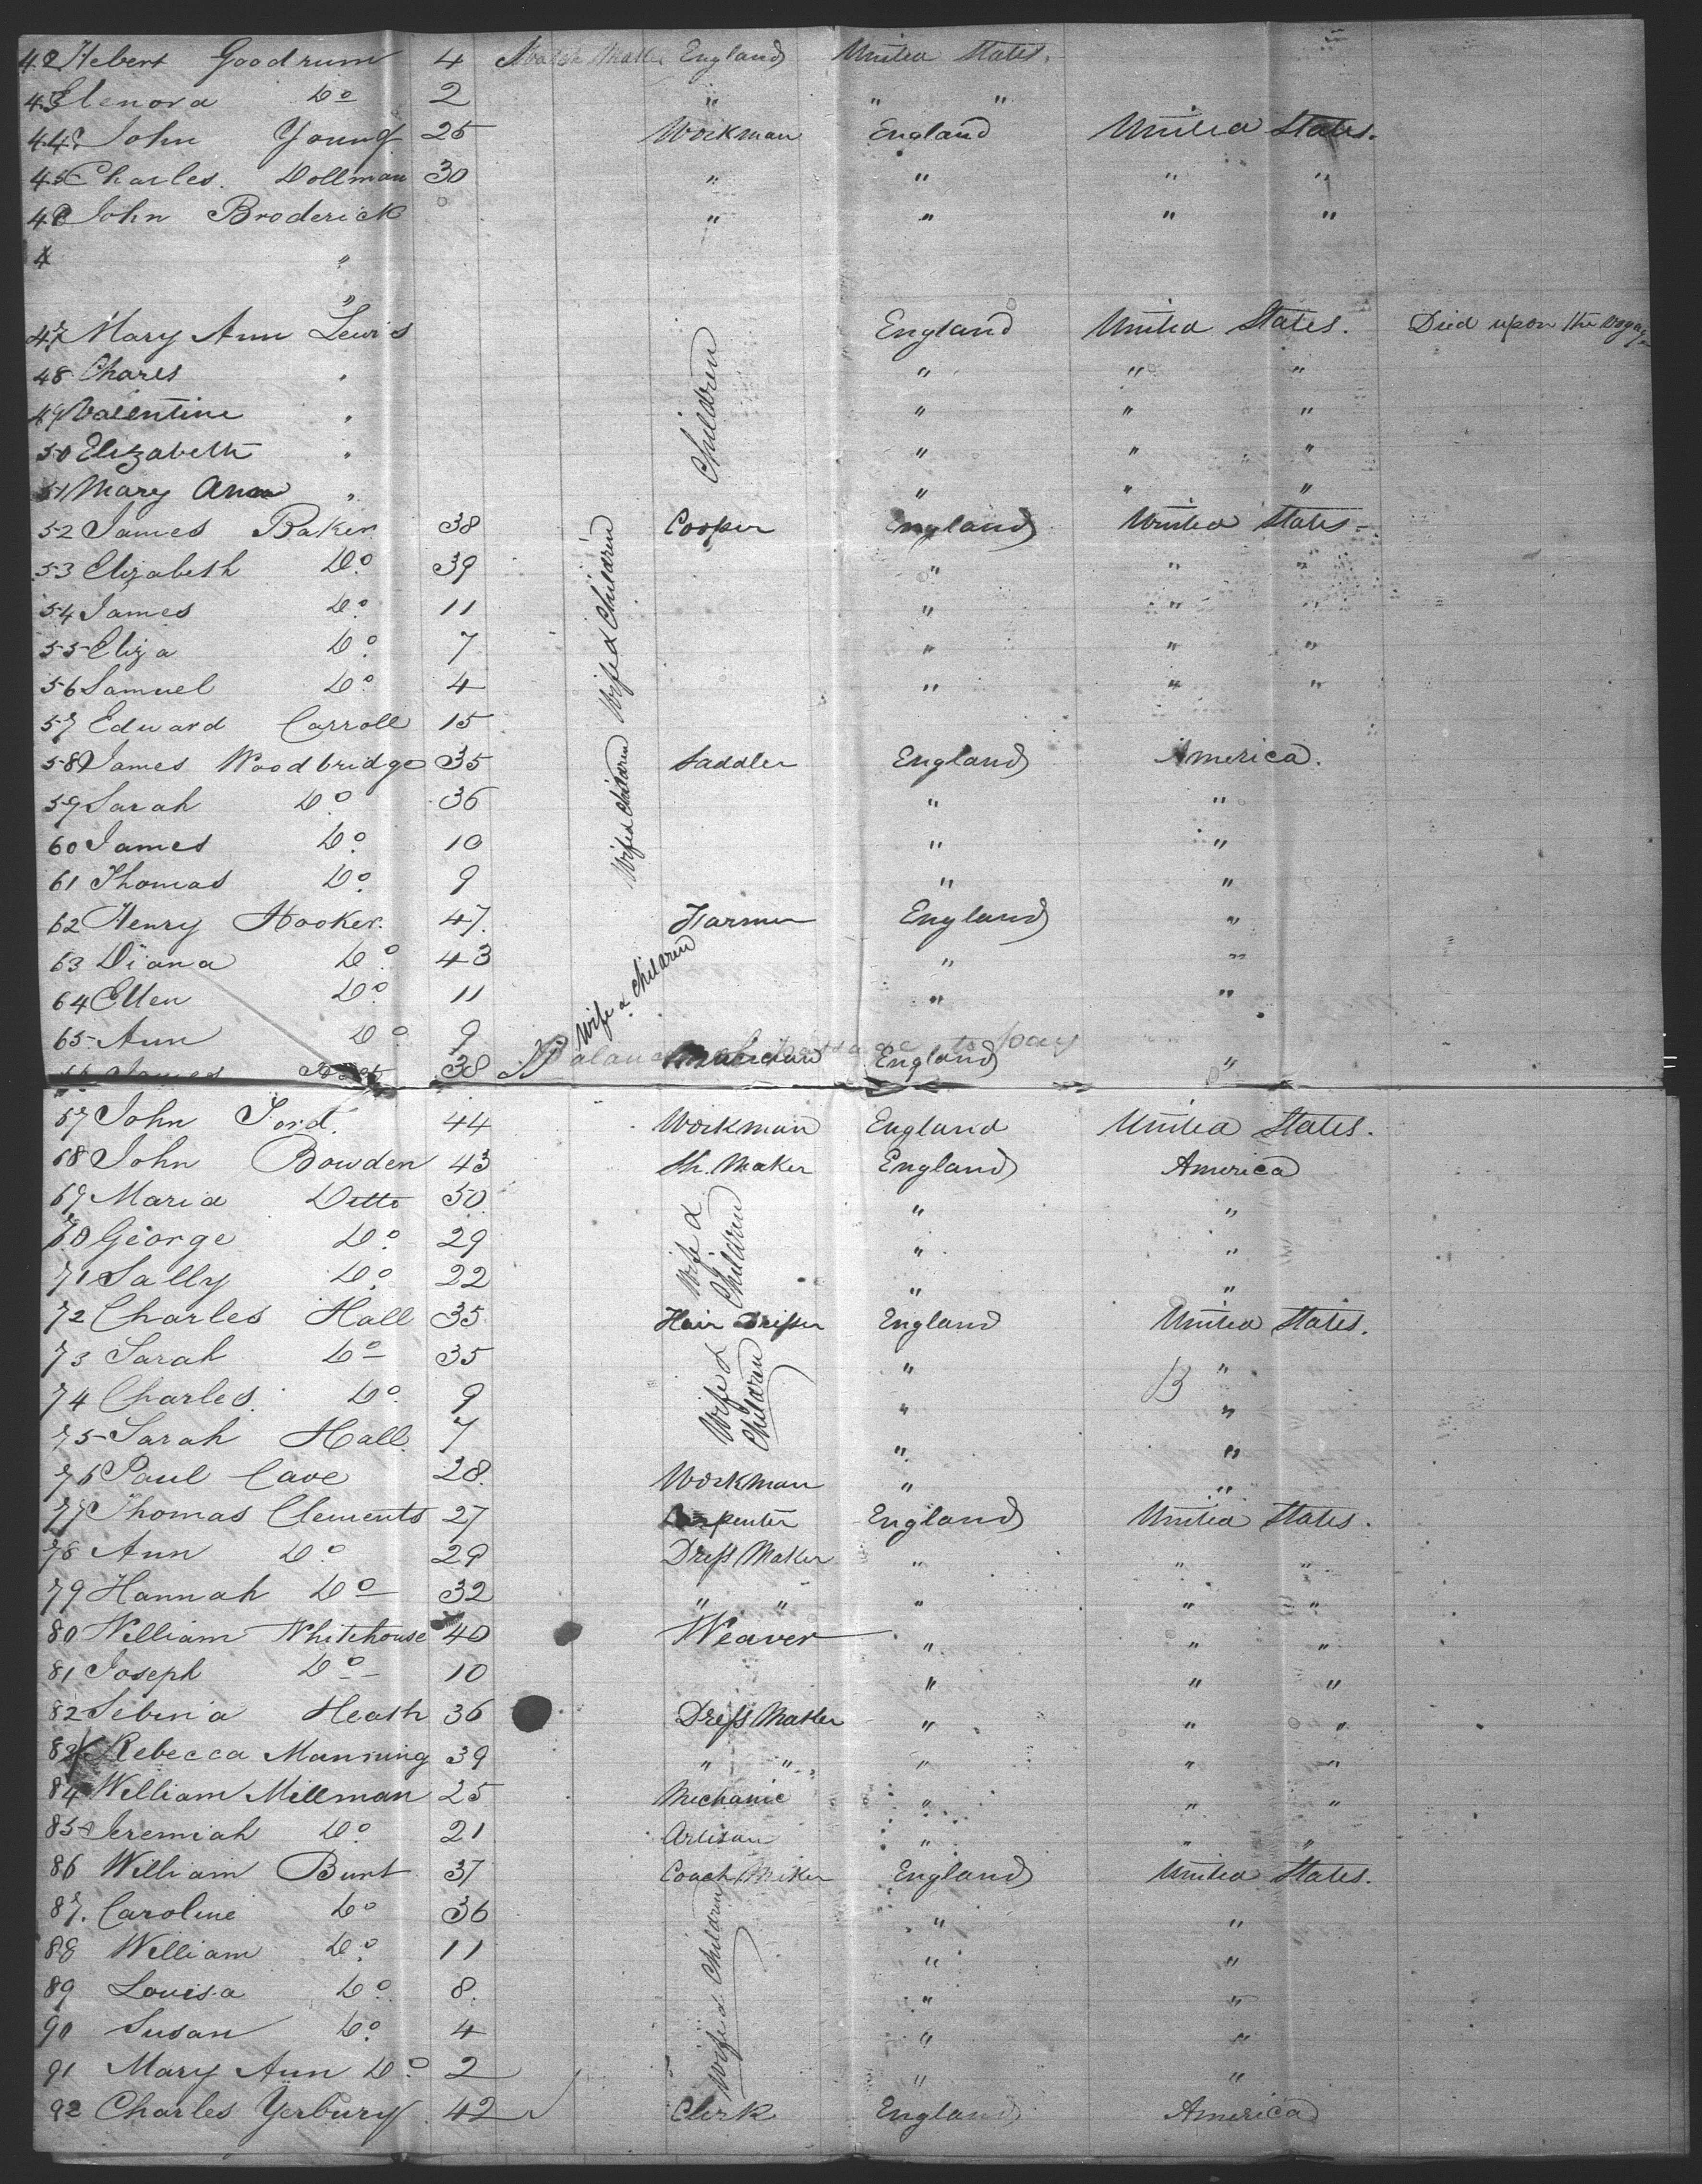 42 Hebert Goodrum 4 England United States.
43 Elenora Do 2 " " "
44 John Young 25 Workman England United States.
45 Charles Dollman 30 " " " "
46 John Broderick " " " "
4 "
"
47 Mary Ann Lewis England United States. Died upon the Voyage
48 Chares " " " "
49 Valentine " " " "
50 Elizabeth " " " "
51 Mary Ann " " " "
Children
52 James Baker 38 Cooper England United States
53 Elizabeth Do 39 " " "
54 James Do 11 " " "
55 Eliza Do 7 " " "
56 Samuel Do 4 " " "
Wife & Children
57 Edward Carroll 15
58 James Woodbridge 35 Saddler England America.
59 Sarah Do 36 " "
60 James Do 10 " "
61 Thomas Do 9 " "
Wife & Children
62 Henry Hooker. 47. Farmer England "
63 Diana Do 43 " "
64 Ellen Do 11 " "
65 Ann Do 9
Wife & Children
to pay
James 38 England "
67 John Ford. 44 Workman England United States.
68 John Bowden 43 Sh. Maker England America
69 Maria Ditto 50 " "
70 George Do 29 " "
71 Sally Do 22 " "
Wife & Children
72 Charles Hall 35 Hair Dresser England United States.
73 Sarah Do 35 " "
74 Charles. Do 9 " "
75 Sarah Hall 7 " "
Wife & Children
76 Paul Cave 28. Workman " "
77 Thomas Clements 27 Carpenter England United States.
78 Ann Do 29 Dress Maker " " "
79 Hannah Do 32 " " " " "
80 William Whitehouse 40 Weaver " " "
81 Joseph Do 10 " " "
82 Sebina Heath 36 Dress Maker " " "
83 Rebecca Manning 39 " " " " "
84 William Millman 25 Mechanic " " "
85 Jeremiah Do 21 Artisan " " "
86 William Burt 37 Coach Maker England United States.
87. Caroline Do 36 " "
88 William Do 11 " "
89 Louisa Do 8. " "
90 Susan Do 4 " "
91 Mary Ann Do 2 " "
Wife & Children
92 Charles Yerbury 42 Clerk England America